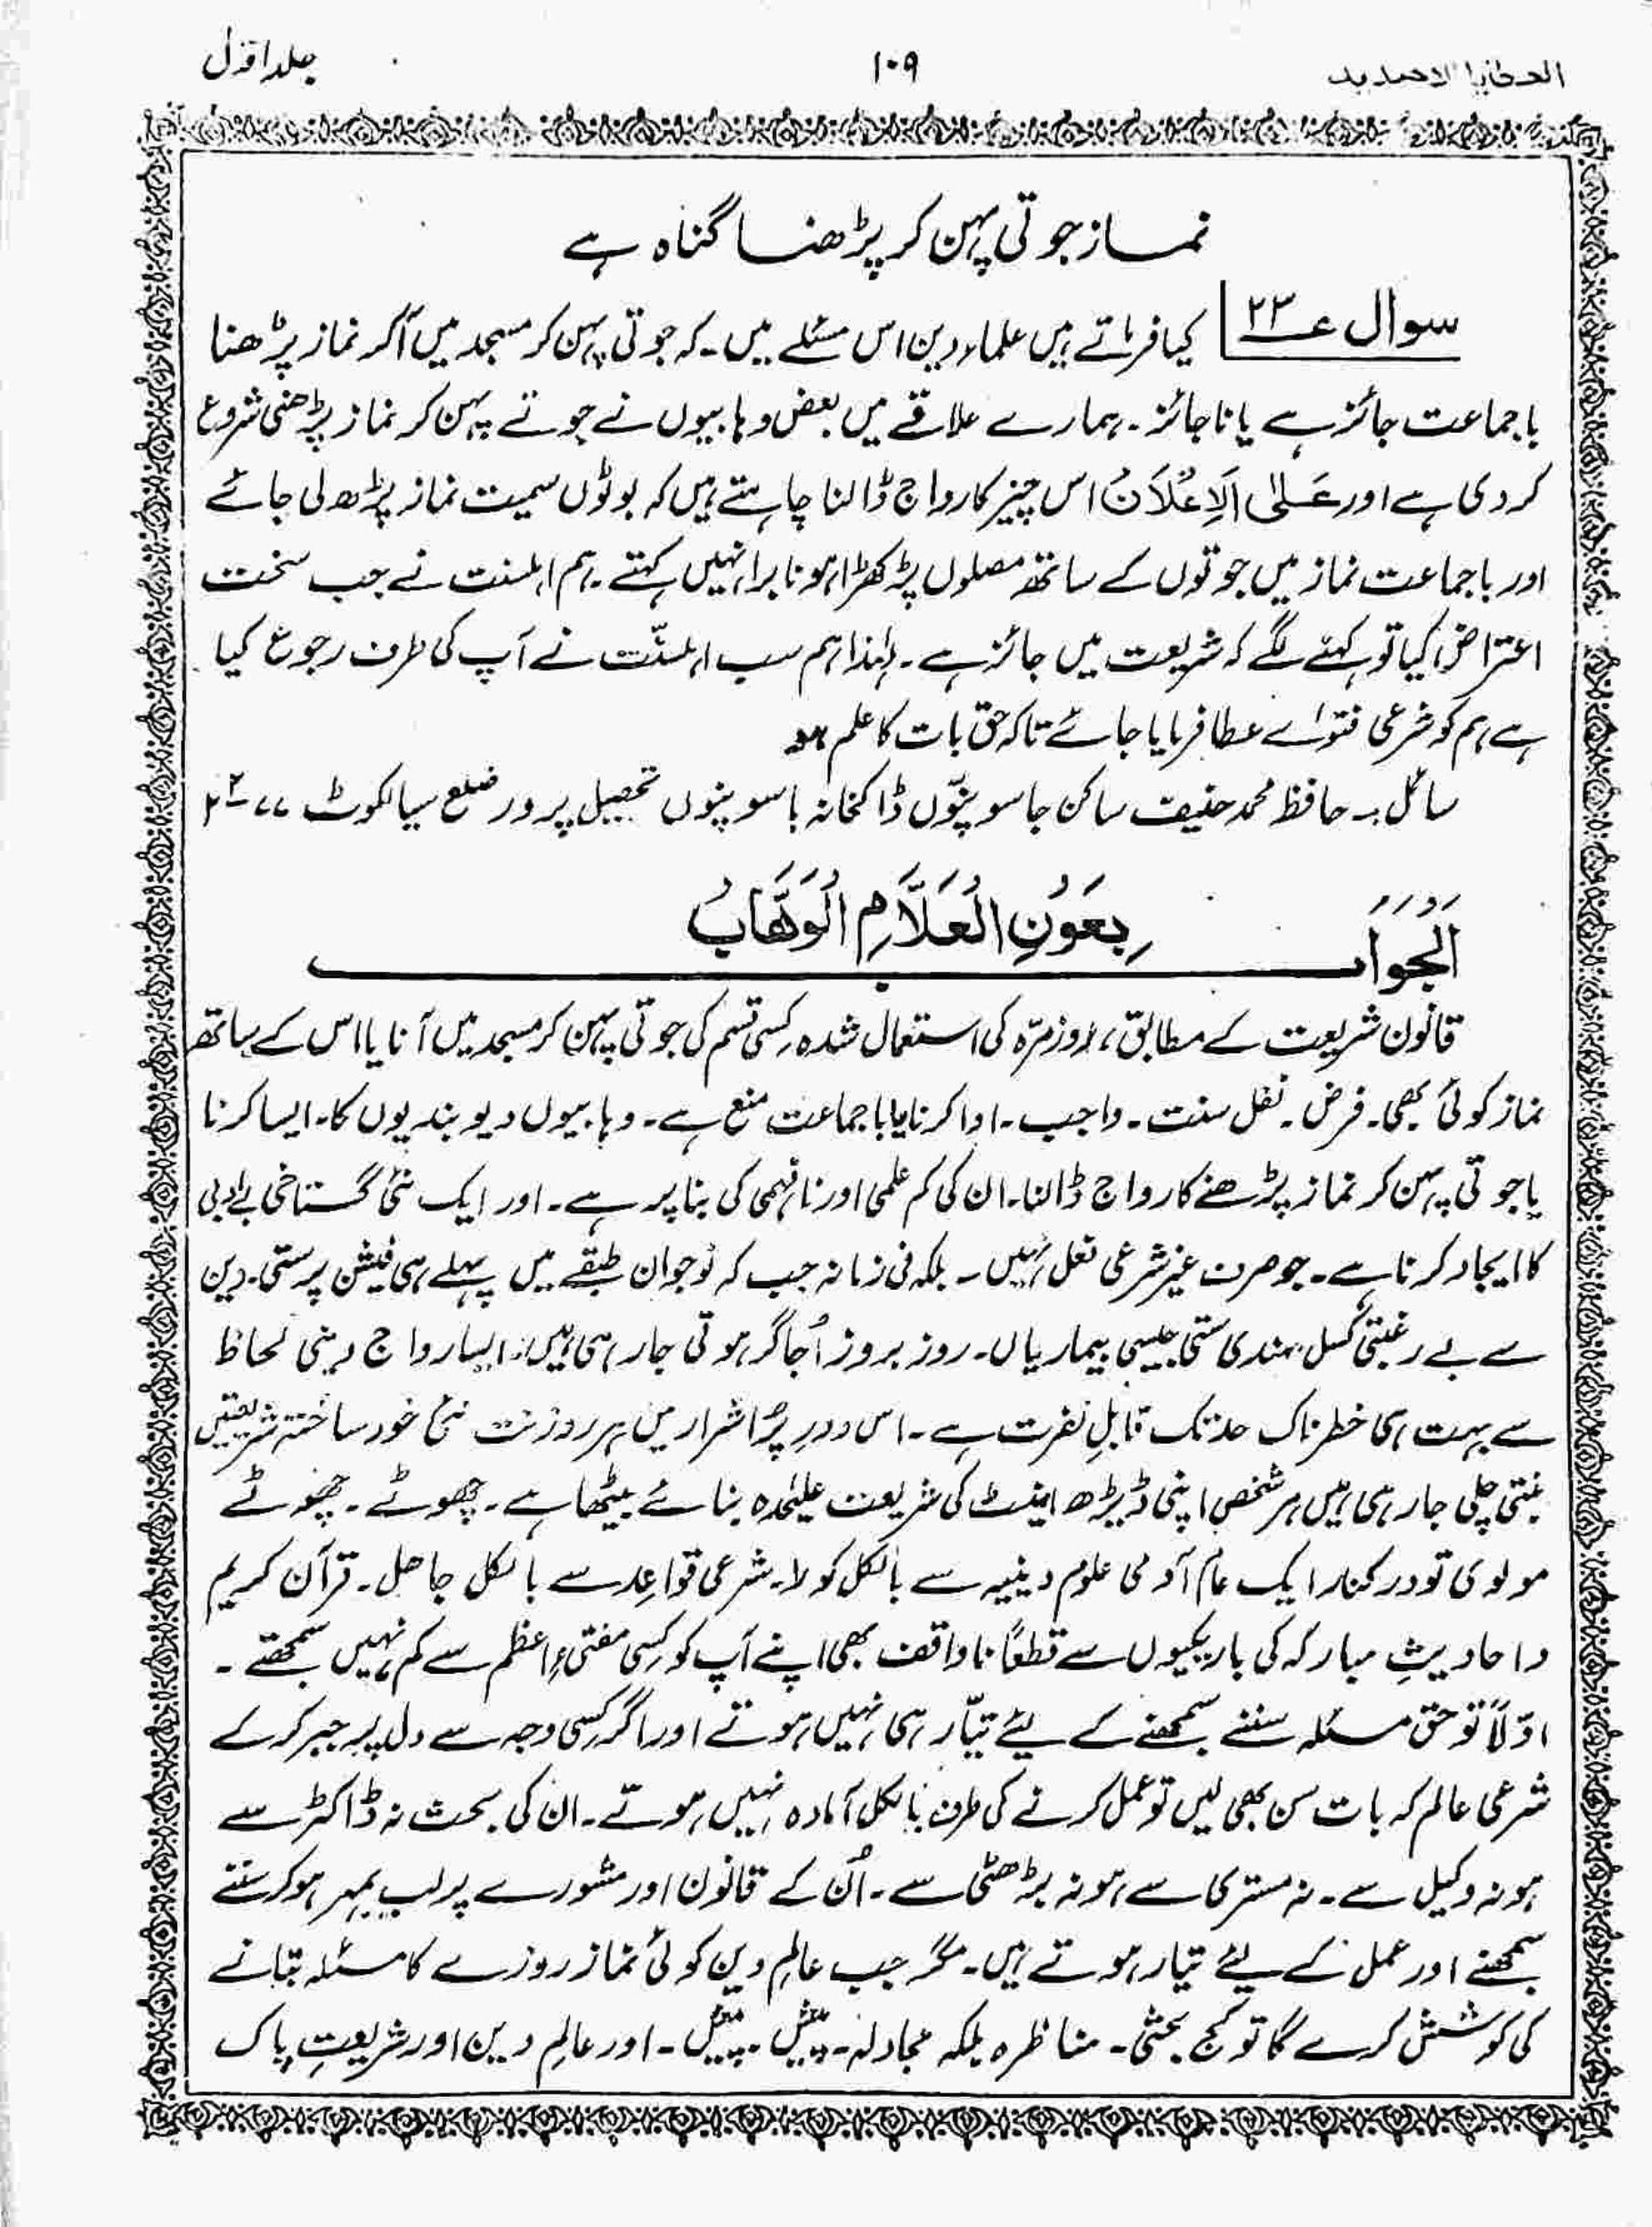 العطایا الاحمدیہ
۱۰۹
جلد اوّل
نمـــاز جوتی پہن کر پڑھنـــا گناہ ہے
سوال ع۲۳
کیا فرماتے ہیں علماءِ دین اس مسئلے میں۔ کہ جوتی پہن کر مسجد میں آکر نماز پڑھنا
باجماعت جائز ہے یا ناجائز۔ ہمارے علاقے میں بعض وہابیوں نے جوتے پہن کر نماز پڑھنی شروع
کر دی ہے اور عَلَی الْاِعْلَانْ اس چیز کا رواج ڈالنا چاہتے ہیں کہ بوٹوں سمیت نماز پڑھ لی جائے
اور باجماعت نماز میں جوتوں کے ساتھ مصلوں پڑ کھڑا ہونا برا نہیں کہتے۔ ہم اہلسنت نے جب سخت
اعتراض کیا تو کہنے لگے کہ شریعت میں جائز ہے۔ لہٰذا ہم سب اہلسنّت نے آپ کی طرف رجوع کیا
ہے ہم کو شرعی فتوٰے عطا فرمایا جائے تاکہ حق بات کا علم ہو
سائل :۔ حافظ محمد حنیف ساکن جاسو پنّوں ڈاکخانہ باسو پنوں تحصیل پسرور ضلع سیالکوٹ
اَلْجَوَابـــــــ
بِعَوْنِ الْعَلَّامِ الْوَهَّابْ
قانون شریعت کے مطابق، روز مرّہ کی استعمال شدہ کسی قسم کی جوتی پہن کر مسجد میں آنا یا اس کے ساتھ
نماز کوئی بھی۔ فرض۔ نفل سنت۔ واجب۔ ادا کرنا یا باجماعت منع ہے۔ وہابیوں دیوبندیوں کا۔ ایسا کرنا
یا جوتی پہن کر نماز پڑھنے کا رواج ڈالنا۔ ان کی کم علمی اور نافہمی کی بنا پر ہے۔ اور ایک نئی گستاخی بے ادبی
کا ایجاد کرنا ہے۔ جو صرف غیر شرعی فعل نہیں۔ بلکہ فی زمانہ جب کہ نوجوان طبقے میں پہلے ہی فیشن پرستی۔ دین
سے بے رغبتی کسل مندی سستی جیسی بیماریاں۔ روز بروز اُجاگر ہوتی جا رہی ہیں۔ ایسا رواج دینی لحاظ
سے بہت ہی خطرناک حد تک قابلِ نفرت ہے۔ اس دورِ پُر اشرار میں ہر روز نت نئی خود ساختہ شریعتیں
بنتی چلی جا رہی ہیں ہر شخص اپنی ڈیڑھ اینٹ کی شریعت علیٰحدہ بنائے بیٹھا ہے۔ چھوٹے۔ چھوٹے
مولوی تو درکنار ایک عام آدمی علوم دینیہ سے بالکل کورا۔ شرعی قواعِد سے بالکل جاہل۔ قرآن کریم
و احادیثِ مبارکہ کی باریکیوں سے قطعاً ناواقف بھی اپنے آپ کو کسی مفتیءِ اعظم سے کم نہیں سمجھتے۔
اوّلاً تو حق مسئلہ سننے سمجھنے کے لیئے تیّار ہی نہیں ہوتے اور اگر کسی وجہ سے دل پر جبر کر کے
شرعی عالم کہ بات سن بھی لیں تو عمل کرنے کی طرف بالکل آمادہ نہیں ہوتے۔ ان کی بحث نہ ڈاکٹر سے
ہو نہ وکیل سے۔ نہ مستری سے ہو نہ بڑھئی سے۔ اُن کے قانون اور مشورے پر لب بمہر ہو کر سننے
سمجھنے اور عمل کے لیئے تیار ہوتے ہیں۔ مگر جب عالمِ دین کوئی نماز روزے کا مسئلہ بتانے
کی کوشش کرے گا تو کج بحثی۔ مناظرہ بلکہ مجادلہ۔ اور عالمِ دین اور شریعتِ پاک